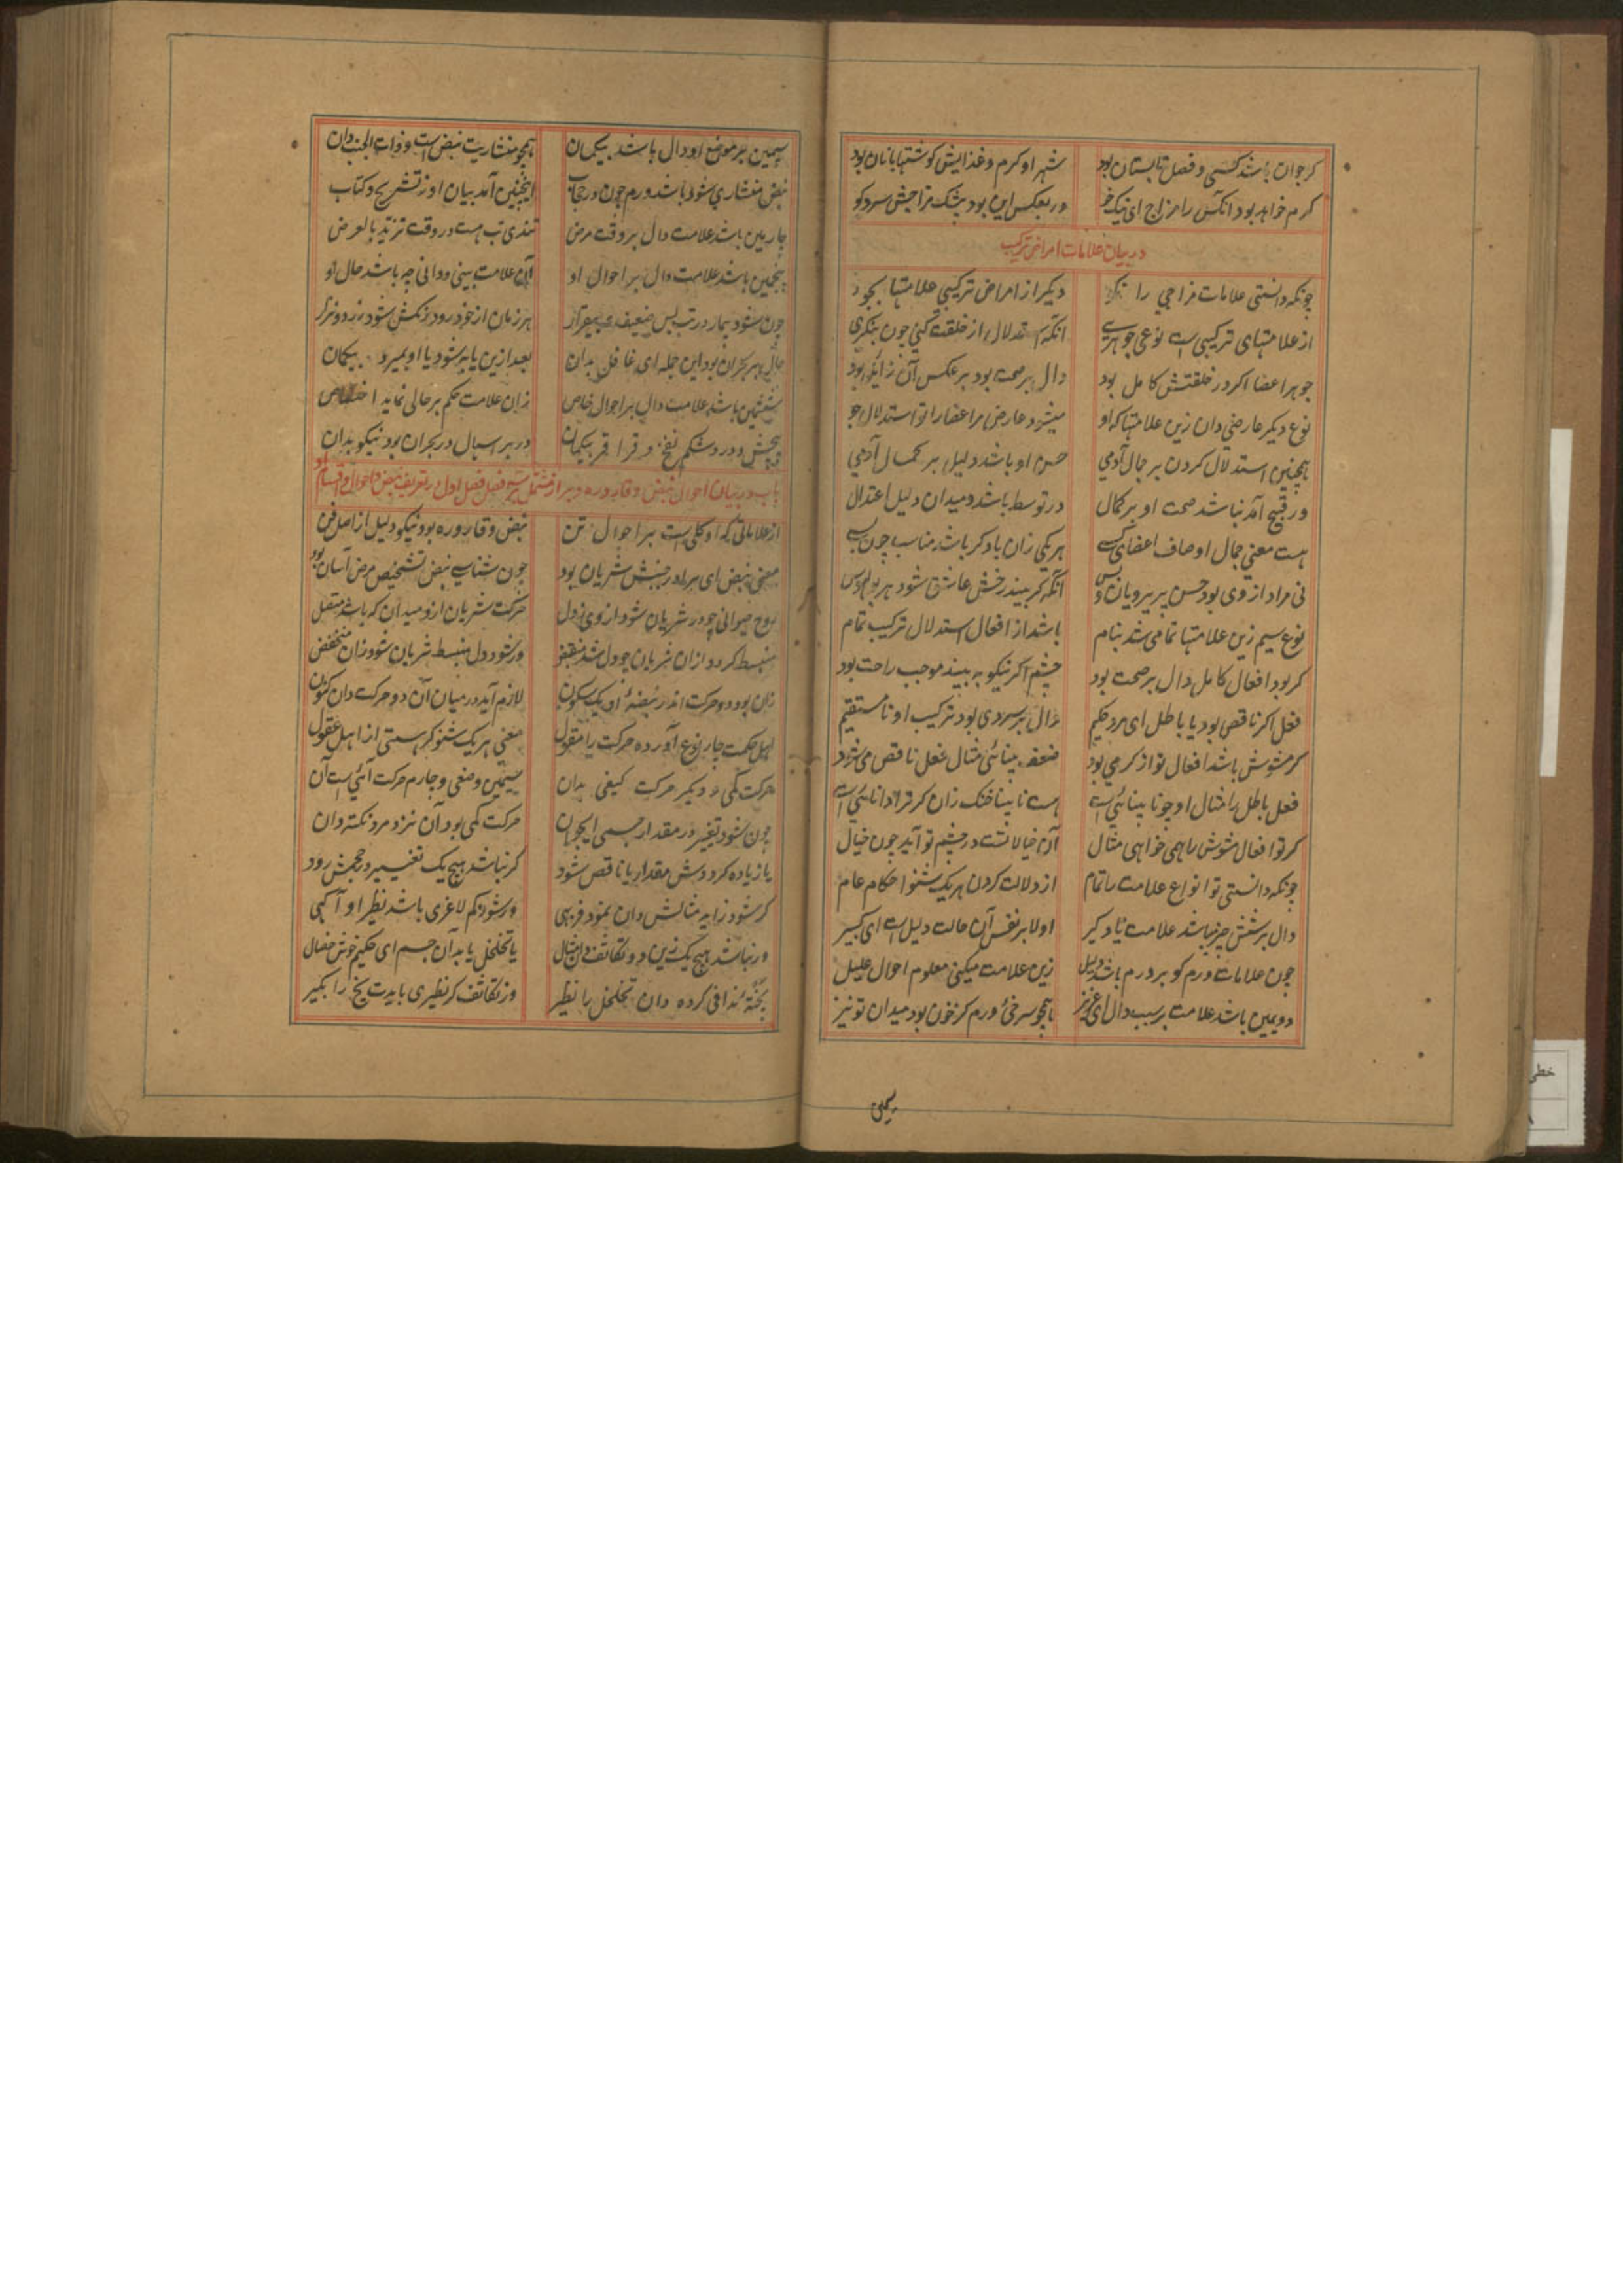 کر جوان باشد کسی و فصل تابستان بود شهر او کرم و غذایش کوشتها با نان بود
کرم خواهد بود آنکس را مزاج ای نیک خو ور بعکس این بود بیشک مزاجش سرد کو
در بیان علامات امراض ترکیب
چونکه دانستی علامات مزاجی را دیکر از امراض ترکیبی علامتها بجو
از علامتهای ترکیبی است نوعی جوهری آنکه استدلال از خلقت کنی چون بنکری
جوهر اعضا اکر در خلقتش کامل بود دال بر صحت بود بر عکس آن زایل بود
نوع دیکر عارضی دان زین علامتها که او میشود عارض مر اعضا را تو استدلال جو
همچنین استدلال کردن بر جمال آدمی حسن او باشد دلیل بر کمال آدمی
ور قبیح آمد نباشد صحت او بر کمال در توسط باشد و میدان دلیل اعتدال
هست معنی جمال اوصاف اعضای هر یکی زان یاد کر باشد مناسب چون
نی مراد از وی بود حسن پریرویان و بس آنکه کر بیند رخش عاشق شود هر بوالهوس
نوع سیم زین علامتها تمامی شد بنام باشد از افعال استدلال ترکیب تمام
کر بود افعال کامل دال بر صحت بود چشم اکر نیکو به بیند موجب راحت بود
فعل اکر ناقص بود یا باطل ای مرد حکیم دال بر سردی بود ترکیب او نامستقیم
کر مشوش باشد افعال تو از کرمی بود ضعف بینائی مثال فعل ناقص می شود
فعل باطل را مثال او چو نابینائی است هست نابینا خنک زان کر ترا دانائی است
کر تو افعال مشوش را همی خواهی مثال آن خیالاتست در چشم تو آید چون خیال
چونکه دانستی تو انواع علامت را تمام از دلالت کردن هر یک شنو احکام عام
دال بر شش چیز باشد علامت یاد کیر اولا بر نفس آن حالت دلیل است ای کبیر
چون علامات ورم کو بر ورم باشد دلیل زین علامت میکنی معلوم احوال علیل
دویمین باشد علامت بر سبب دال ای عزیز همچو سرخی ورم کز خون بود میدان تو نیز
سیمین بر موضع او دال باشد بیکمان همچو منشاریت نبض است و ذات الجنب دان
نبض منشاری شود باشد ورم چون در حجاب اینچنین آمد بیان او ز تشریح و کتاب
چارمین باشد علامت دال بر وقت مرض تندی تب هست در وقت تزید بالعرض
پنجمین باشد علامت دال بر احوال او آن علامت بینی و دانی چه باشد حال او
چون شود بیمار در تب بس ضعیف و بیقرار هر زمان از خود رود رنکش شود زرد و نزار
حال بحران بود این جمله ای غافل بدان بعد ازین یا به شود یا او بمیرد بیکمان
ششمین باشد علامت دال بر احوال خاص زان علامت حکم بر حالی نماید اختصاص
پیچش و درد شکم نفخ و قراقر بیکمان در بر اسهال در بحران بود نیکو بدان
باب در بیان احوال نبض و قاروره و براز مشتمل بر سه فصل فصل اول در تعریف نبض و احوال و اقسام او
از علاماتی که او کلی است بر احوال تن نبض و قاروره بود نیکو دلیل از اصل فن
معنی نبض ای برادر جنبش شریان بود چون شناسی نبض تشخیص مرض آسان بود
روح حیوانی چو در شریان شود از وی نزول حرکت شریان ازو میدان که باشد منتقل
منبسط کردد ازان شریان چو دل شد منقبض ور شود دل منبسط شریان شود زان منخفض
زان بود دو حرکت اندر نبضهٔ او یک سکون لازم آید در میان آن دو حرکت دان کنون
اهل حکمت چار نوع آورده حرکت را مقول معنی هر یک شنو کر هستی از اهل عقول
حرکت کمی و دیکر حرکت کیفی بدان سیمین وضعی و چارم حرکت آینی است آن
چون شود تغییر در مقدار جسمی ایجوان حرکت کمی بود آن نزد مرد نکته دان
یا زیاده کرددش مقدار یا ناقص شود کر نباشد هیچ یک تغییر در حجمش رود
کر شود زاید مثالش دان نمو و فربهی ور شود کم لاغری باشد نظیر او آکهی
ور نباشد هیچ یک زین دو تکاثف دان مثال یا تخلخل یابد آن جسم ای حکیم خوش خصال
پختهٔ ندافی کرده دان تخلخل را نظیر وز تکاثف کر نظیری بایدت یخ را بکیر
سیمین
خطی